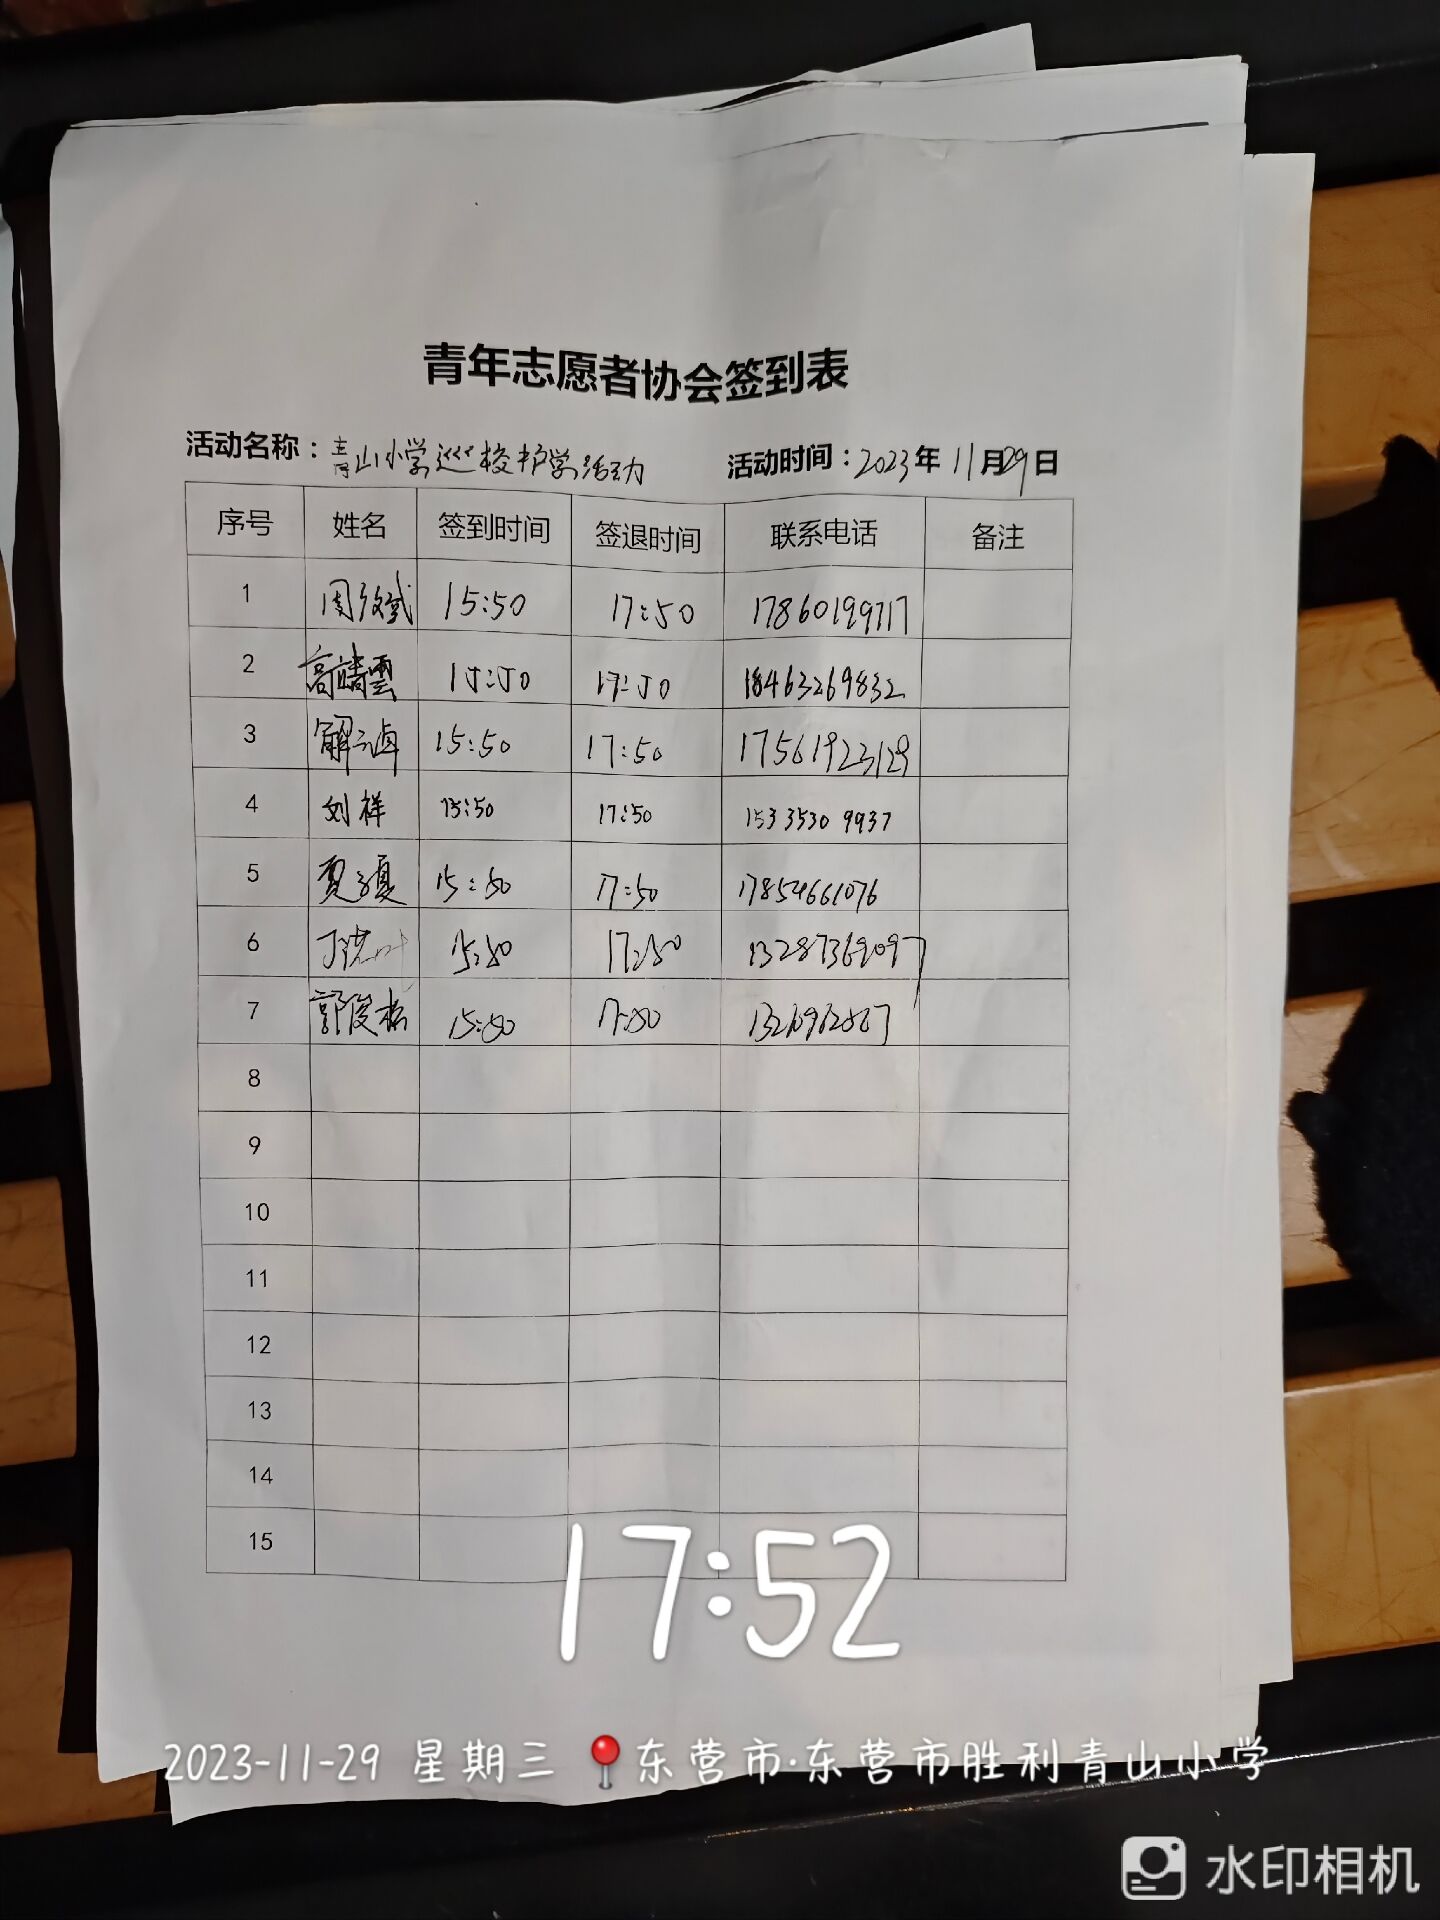 青年志愿者协会签到表
活动名称：青山小学巡校护学活动 活动时间：2023年11月29日
序号 姓名 签到时间 签退时间 联系电话 备注
1 周 15:50 17:50 17860199717
2 高靖雲 15:50 17:50 18463269832
3 解 15:50 17:50 17561923129
4 刘祥 15:50 17:50 15335309937
5 15:50 17:50 17854661076
6 丁 15:50 17:50 13287369097
7 郭俊松 15:50 17:50
8
9
10
11
12
13
14
15
17:52
2023-11-29 星期三 东营市·东营市胜利青山小学
水印相机